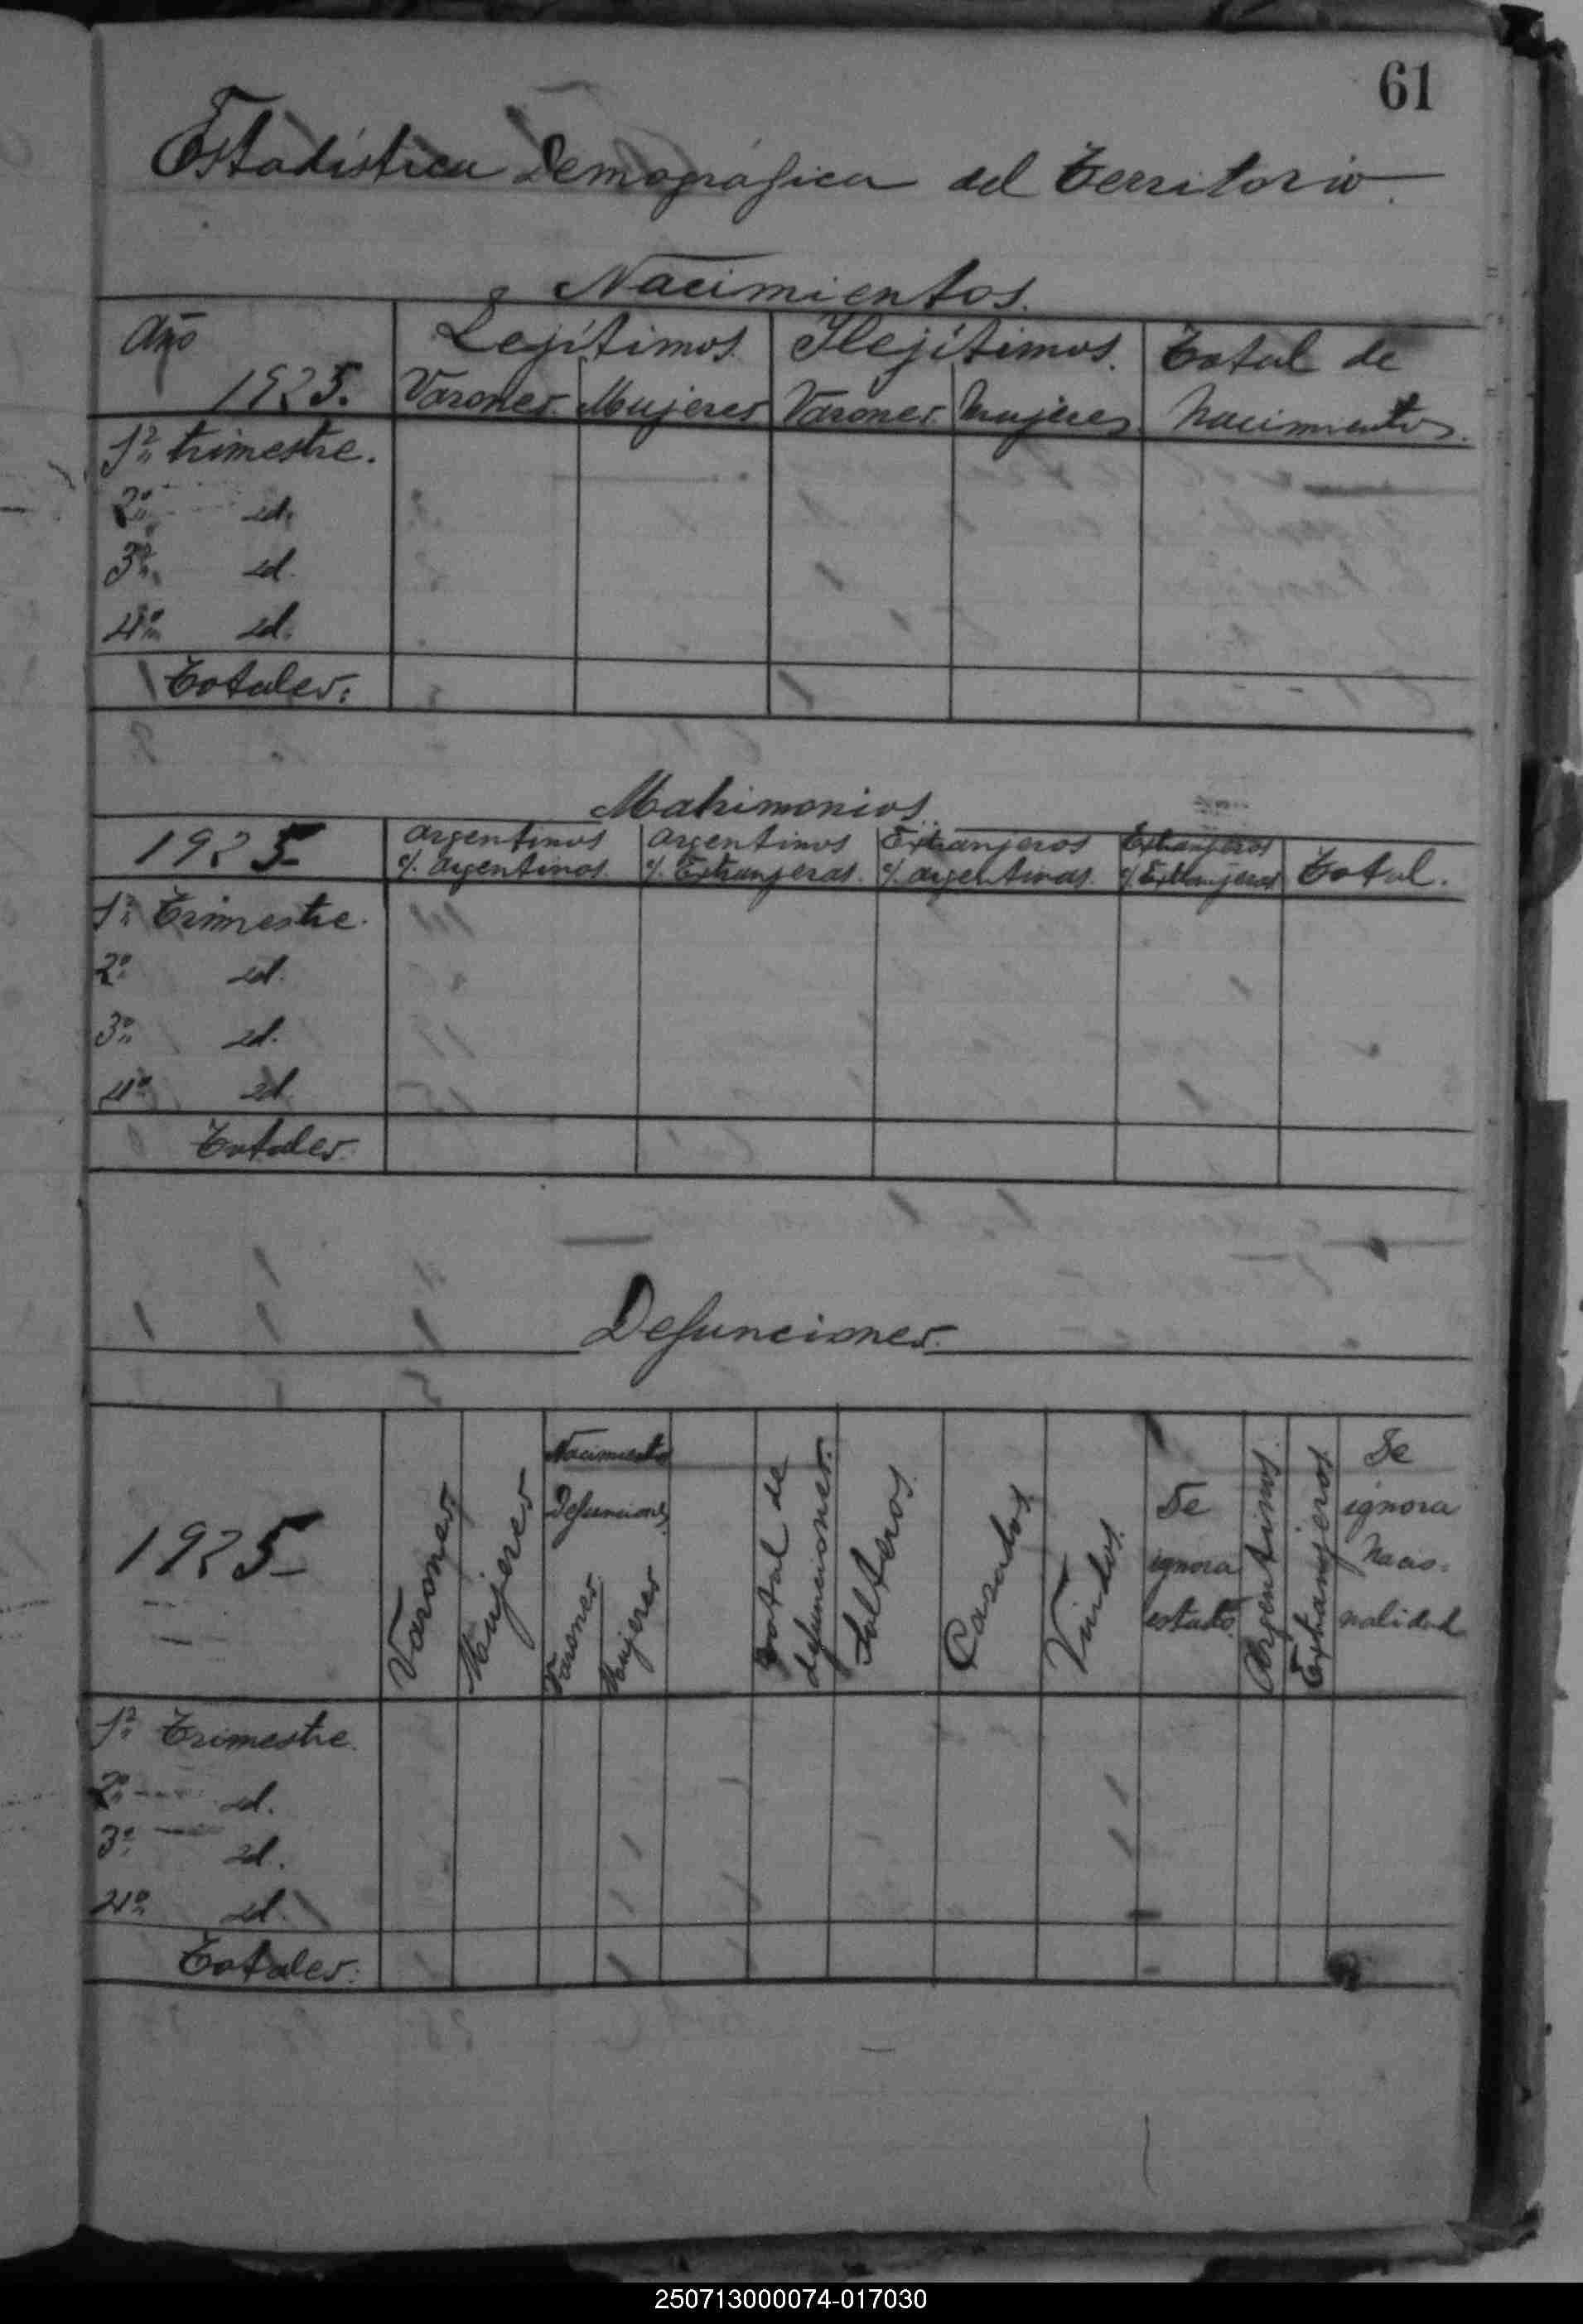 61
Estadística Demográfica del Territorio.
Nacimientos.
Año 1925.
Legítimos. Ilejítimos. Total de
Varones. Mujeres Varones. Mujeres Nacimientos.
1º trimestre.
2º id.
3º id.
4º id.
Totales:
Matrimonios
1925
Argentinos Argentinos Extranjeros Extranjeros Total.
c/. Argentinas. c/. Extranjeras. c/. argentinas. c/ Extranjeras
1º Trimestre.
2º id.
3º id.
4º id.
Totales.
Defunciones.
1925
Varones
Mujeres
Nacimientos
Defunciones
Varones
Mujeres
Total de
defunciones.
Solteros
Casados
Viudos.
Se
ignora
estado.
Argentinos.
Extranjeros
Se
ignora
Nacio-
nalidad
1º Trimestre.
2º id.
3º id.
4º id.
Totales:
250713000074-017030